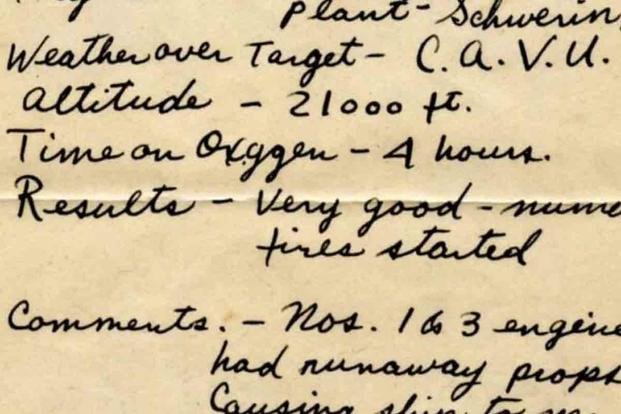 Plant - Schwerin,
Weather over Target - C.A.V.U.
Altitude - 21000 ft.
Time on Oxygen - 4 hours.
Results - Very good - nume
fires started
Comments. - Nos. 1 & 3 engine
had runaway props
Causing ship to